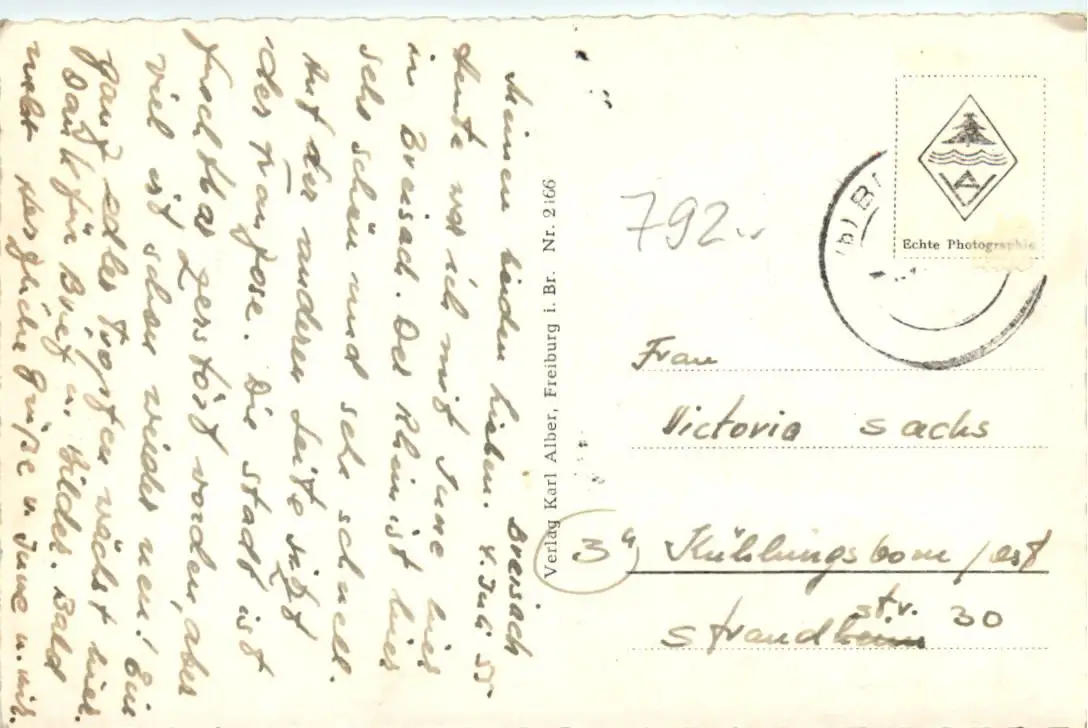 Breisach
4. Juli 55.
Meinen beiden Lieben.
Heute war ich mit Inne hier
in Breisach. Der Rhein ist hier
sehr schön und sehr schnell.
Auf der anderen Seite sitzt
der Franzose. Die Stadt ist
furchtbar zerstört worden, aber
viel ist schon wieder neu! Ein
ganz edler Tropfen wächst hier.
Dank für Brief u. Bilder. Bald
mehr herzliche Grüße v. Inne u. mir.
Verlag Karl Alber, Freiburg i. Br. Nr. 2166
792
Echte Photographie
Frau
Victoria Sachs
3a Kühlungsborn/ost
Strandstr. 30